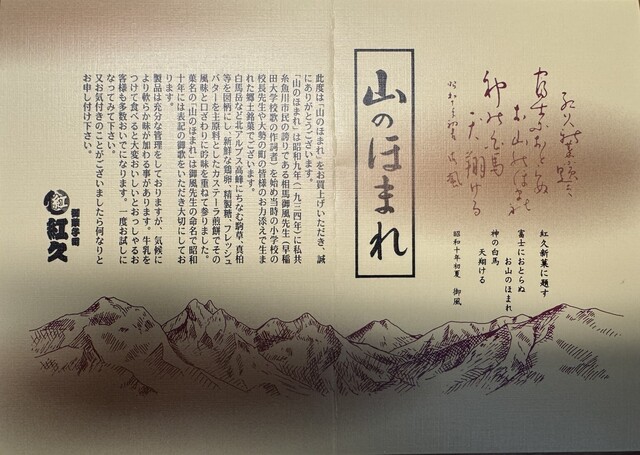 紅久新菓に題す
富士におとらぬ
お山のほまれ
神の白馬
天翔ける
昭和十年初夏 御風
山のほまれ
此度は「山のほまれ」をお買上げいただき、誠
にありがとうございます。
「山のほまれ」は昭和九年(一九三四年)に私共
糸魚川市民の誇りである相馬御風先生(早稲
田大学校歌の作詞者)を始め当時の小学校の
校長先生や大勢の町の皆様のお力添えで生ま
れた郷土銘菓でございます。
白馬岳など北アルプス高峰にちなむ駒草、真柏
等を図柄にし、新鮮な鶏卵、精製糖、フレッシュ
バターを主原料としたカステーラ煎餅でその
風味と口ざわりに吟味を重ねて参りました。
菓名の「山のほまれ」は御風先生の命名で昭和
十年には表記の御歌をいただき大切にしてお
ります。
製品は充分な管理をしておりますが、気候に
より軟らか味が加わる事があります。牛乳を
つけて食べると大変おいしいとおっしゃるお
客様も多数おいでになります。一度お試しに
なってみて下さい。
又お気付きのことがございましたら何なりと
お申し付け下さい。
紅
御菓子司
紅久